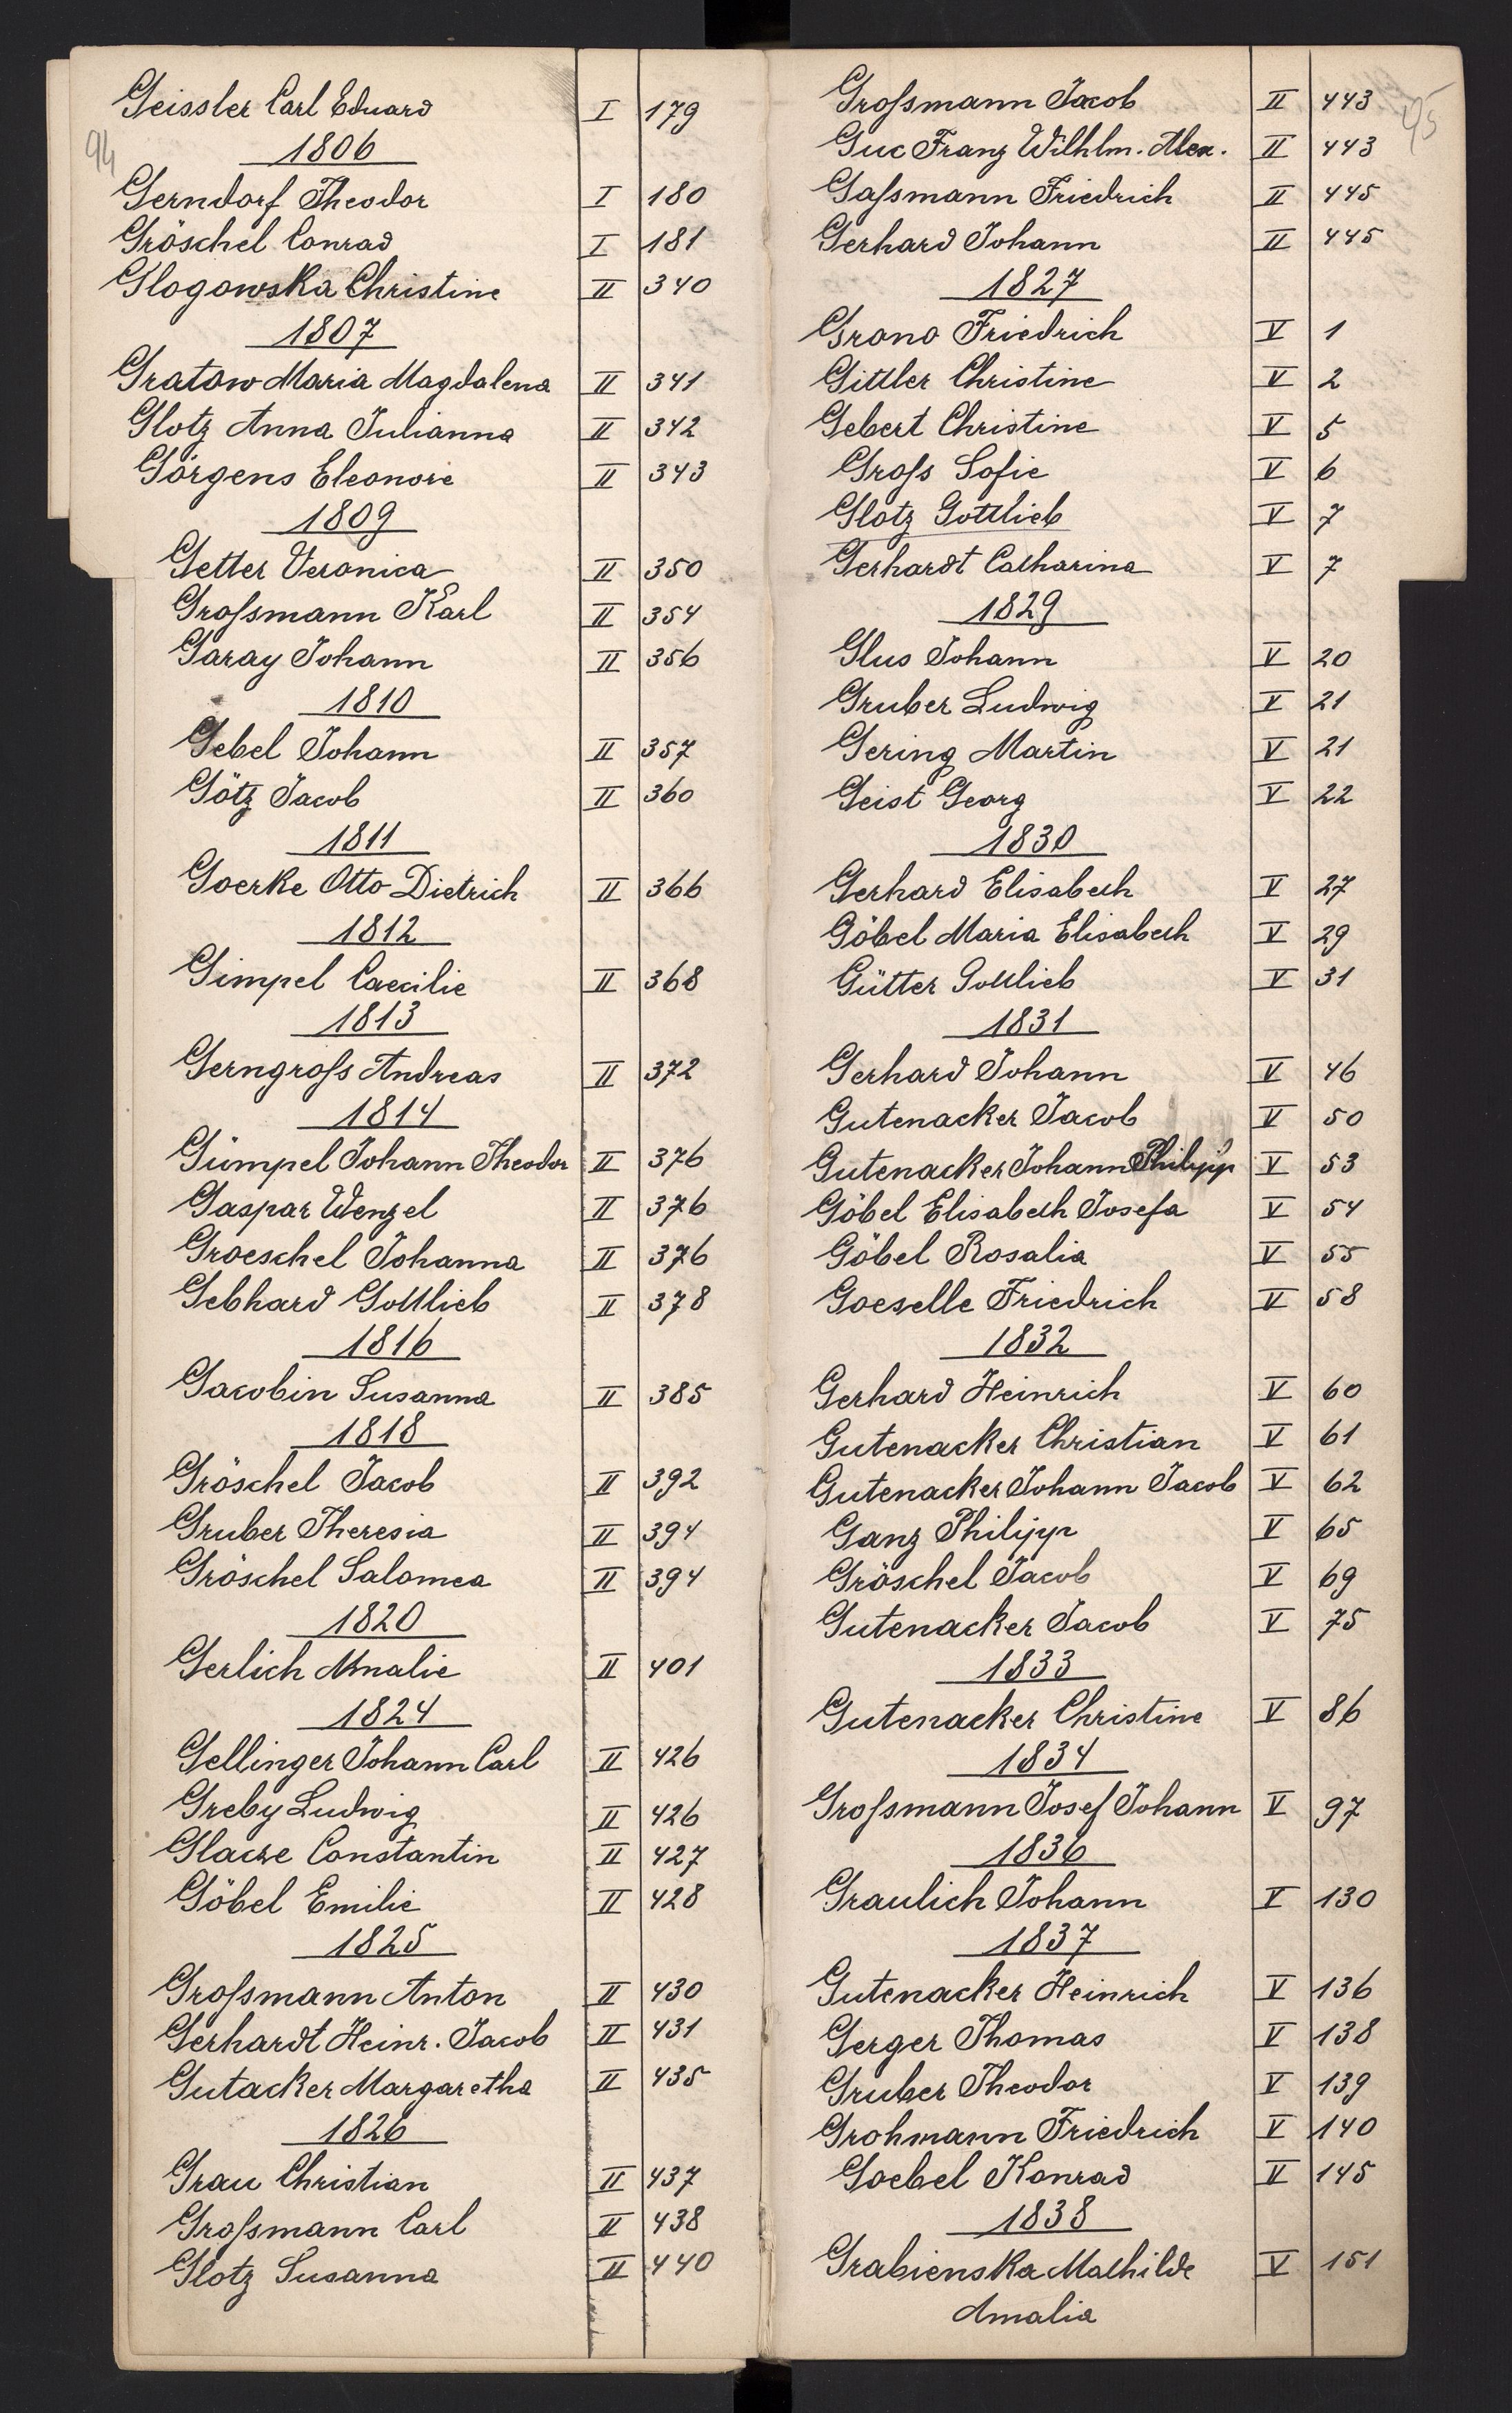 94
Geissler Carl Eduard I 179
1806
Gerndorf Theodor I 180
Gröschel Conrad I 181
Glogowska Christine II 340
1807
Gratow Maria Magdalena II 341
Glotz Anna Julianna II 342
Görgens Eleonore II 343
1809
Getter Veronica II 350
Groſsmann Karl II 354
Garay Johann II 356
1810
Gebel Johann II 357
Götz Jacob II 360
1811
Goerke Otto Dietrich II 366
1812
Gimpel Caecilie II 368
1813
Gerngroſs Andreas II 372
1814
Gümpel Johann Theodor II 376
Gaspar Wenzel II 376
Groeschel Johanna II 376
Gebhard Gottlieb II 378
1816
Gacobin Susanna II 385
1818
Gröschel Jacob II 392
Gruber Theresia II 394
Gröschel Salomea II 394
1820
Gerlich Amalie II 401
1824
Gellinger Johann Carl II 426
Greby Ludwig II 426
Glacze Constantin II 427
Göbel Emilie II 428
1825
Groſsmann Anton II 430
Gerhardt Heinr. Jacob II 431
Gutacker Margaretha II 435
1826
Grau Christian II 437
Groſsmann Carl II 438
Glotz Susanna II 440
95
Groſsmann Jacob II 443
Guc Franz Wilhlm. Alex. II 443
Gaſsmann Friedrich II 445
Gerhard Johann II 445
1827
Grono Friedrich V 1
Gittler Christine V 2
Gebert Christine V 5
Groſs Sofie V 6
Glotz Gottlieb V 7
Gerhardt Catharina V 7
1829
Glus Johann V 20
Gruber Ludwig V 21
Gering Martin V 21
Geist Georg V 22
1830
Gerhard Elisabeth V 27
Göbel Maria Elisabeth V 29
Gütter Gottlieb V 31
1831
Gerhard Johann V 46
Gutenacker Jacob V 50
Gutenacker Johann Philipp V 53
Göbel Elisabeth Josefa V 54
Göbel Rosalia V 55
Goeselle Friedrich V 58
1832
Gerhard Heinrich V 60
Gutenacker Christian V 61
Gutenacker Johann Jacob V 62
Ganz Philipp V 65
Gröschel Jacob V 69
Gutenacker Jacob V 75
1833
Gutenacker Christine V 86
1834
Groſsmann Josef Johann V 97
1836
Graulich Johann V 130
1837
Gutenacker Heinrich V 136
Gerger Thomas V 138
Gruber Theodor V 139
Grohmann Friedrich V 140
Goebel Konrad V 145
1838
Grabienska Mathilde V 151
Amalia